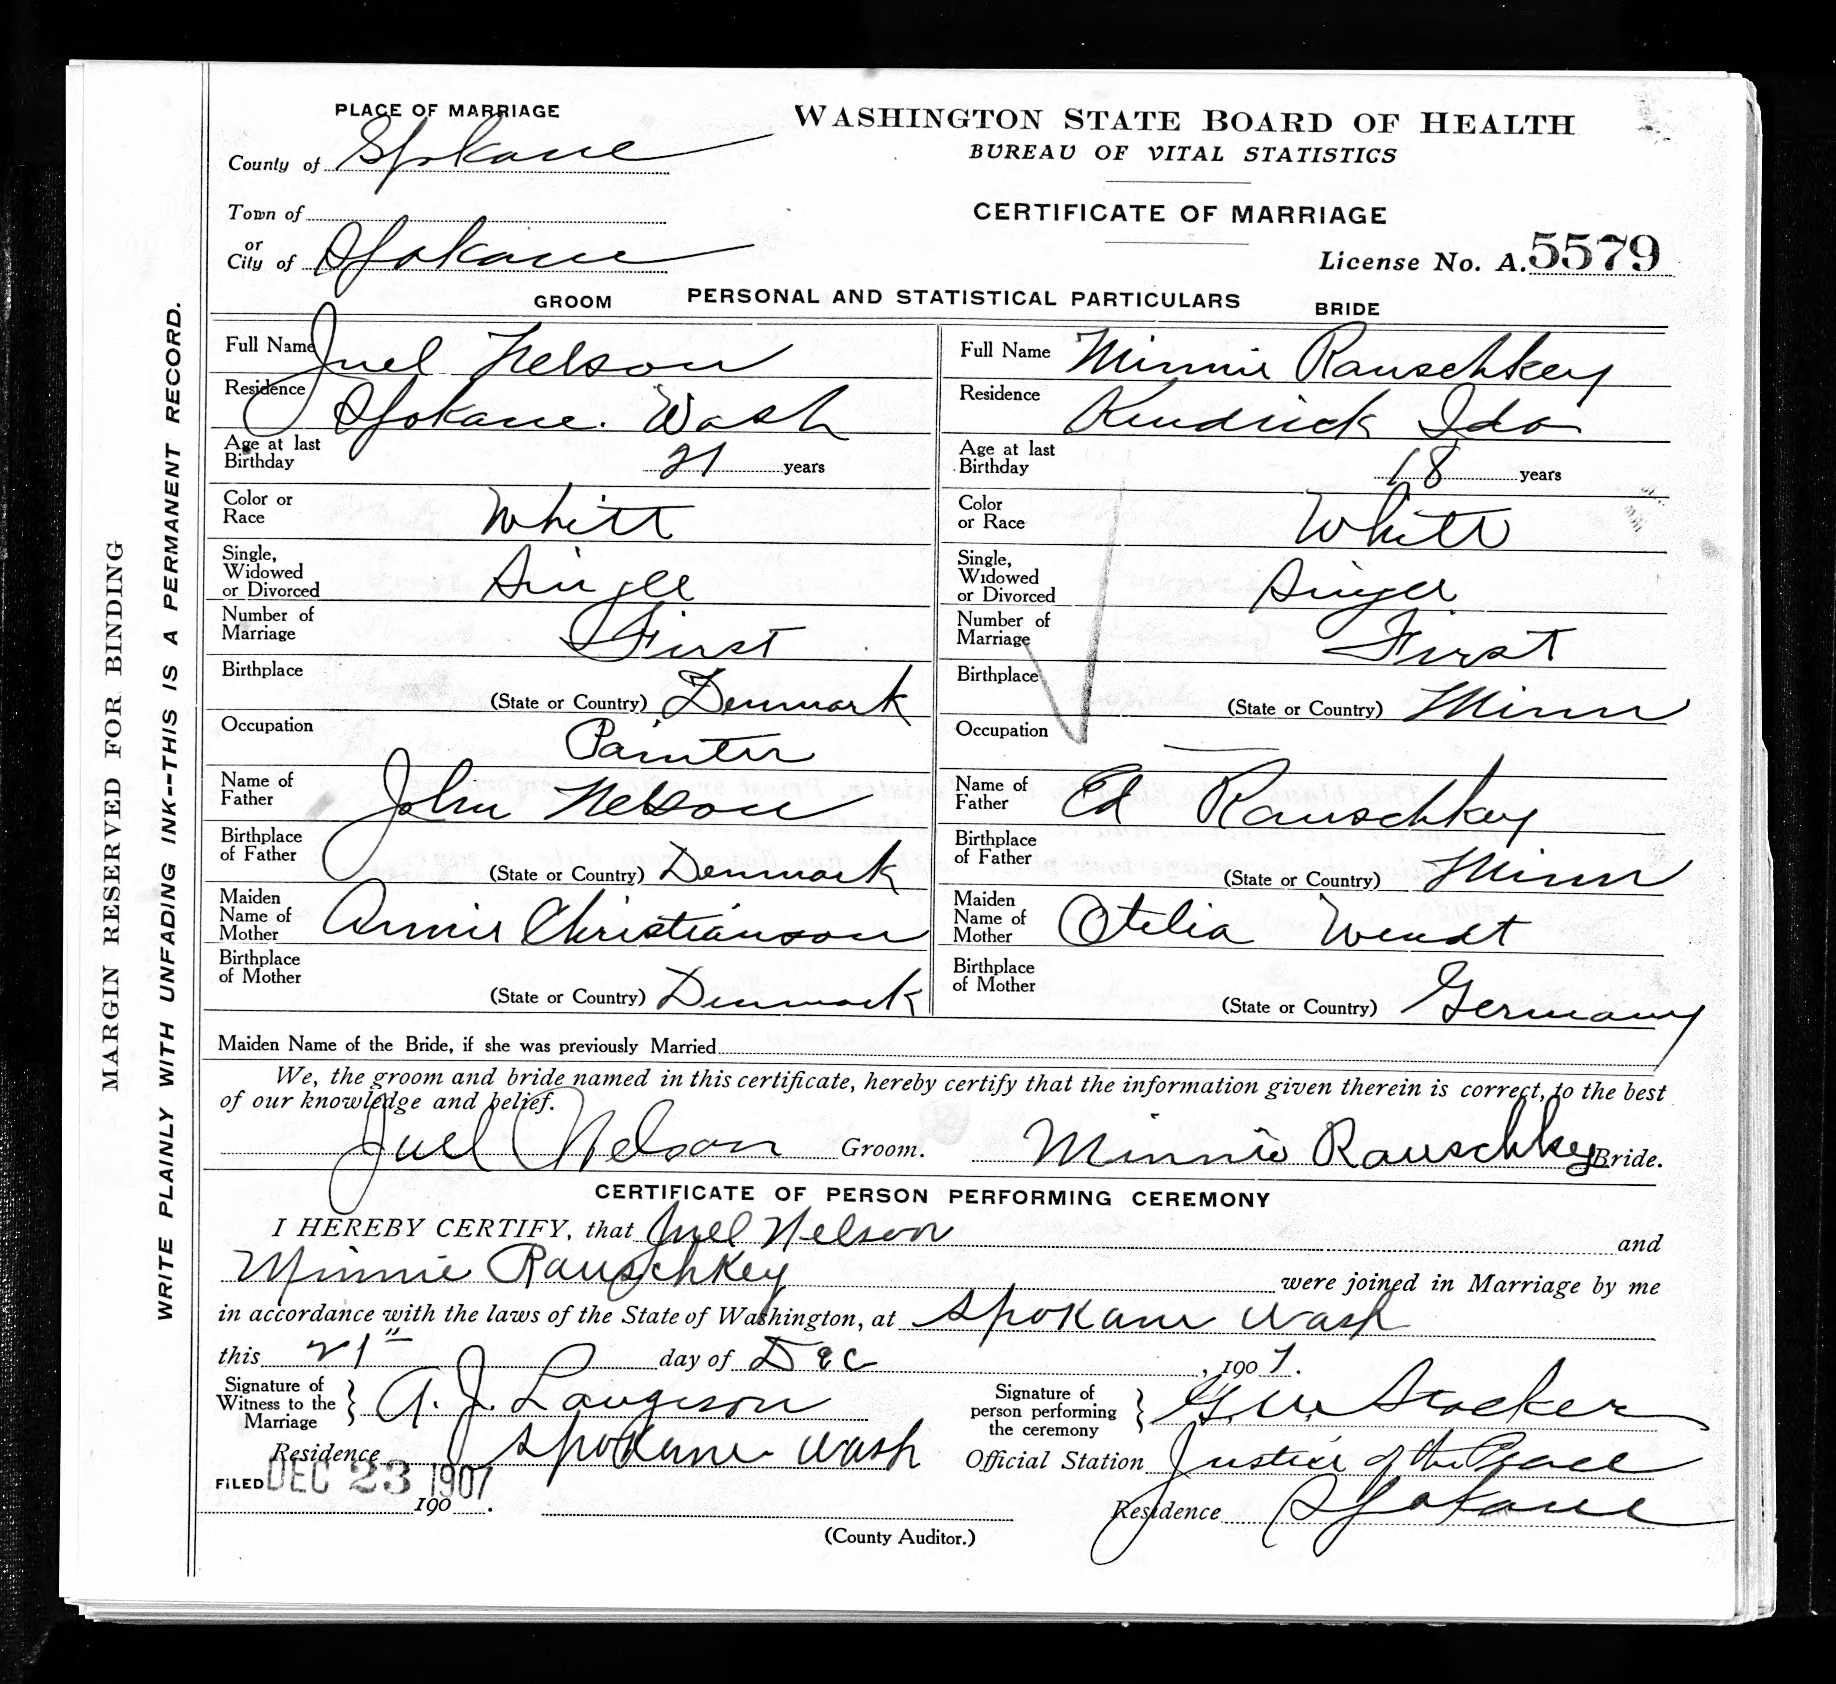 PLACE OF MARRIAGE
County of Spokane
Town of
or
City of Spokane
WASHINGTON STATE BOARD OF HEALTH
BUREAU OF VITAL STATISTICS
CERTIFICATE OF MARRIAGE
License No. A. 5579
PERSONAL AND STATISTICAL PARTICULARS
GROOM
Full Name Juel Nelson
Residence Spokane. Wash
Age at last Birthday 21 years
Color or Race White
Single, Widowed or Divorced Single
Number of Marriage First
Birthplace (State or Country) Denmark
Occupation Painter
Name of Father John Nelson
Birthplace of Father (State or Country) Denmark
Maiden Name of Mother Annie Christianson
Birthplace of Mother (State or Country) Denmark
BRIDE
Full Name Minnie Rauschkey
Residence Kendrick Ida
Age at last Birthday 18 years
Color or Race White
Single, Widowed or Divorced Single
Number of Marriage First
Birthplace (State or Country) Minn
Occupation —
Name of Father Ed Rauschkey
Birthplace of Father (State or Country) Minn
Maiden Name of Mother Otelia Wendt
Birthplace of Mother (State or Country) Germany
Maiden Name of the Bride, if she was previously Married
We, the groom and bride named in this certificate, hereby certify that the information given therein is correct, to the best
of our knowledge and belief.
Juel Nelson Groom. Minnie Rauschkey Bride.
CERTIFICATE OF PERSON PERFORMING CEREMONY
I HEREBY CERTIFY, that Juel Nelson and
Minnie Rauschkey were joined in Marriage by me
in accordance with the laws of the State of Washington, at Spokane Wash
this 21st day of Dec, 1907.
Signature of Witness to the Marriage } A. J. 
Residence Spokane Wash
FILED DEC 23 1907
190 .
(County Auditor.)
Signature of person performing the ceremony } G. W. Stocker
Official Station Justice of the Peace
Residence Spokane
MARGIN RESERVED FOR BINDING
WRITE PLAINLY WITH UNFADING INK--THIS IS A PERMANENT RECORD.